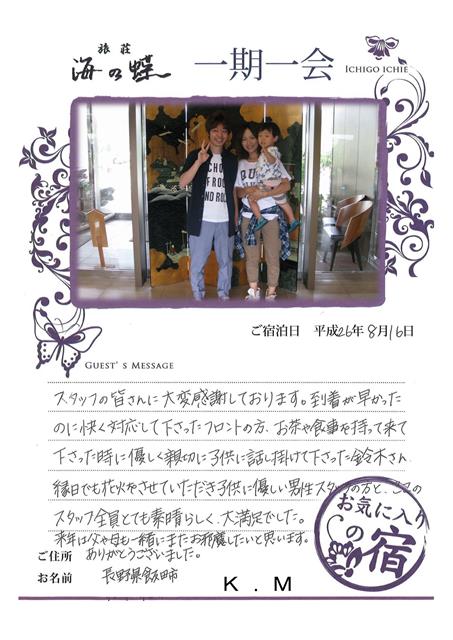 旅荘
海の蝶
一期一会
ICHIGO ICHIE
CHO
OF RO
ND RO
ご宿泊日 平成26年8月16日
GUEST'S MESSAGE
スタッフの皆さんに大変感謝しております。到着が早かった
のに快く対応して下さったフロントの方、お茶や食事を持って来て
下さった時に優しく親切に子供に話し掛けて下さった鈴木さん、
縁日でも花火をさせていただき子供に優しい男性スタッフの方と、ここの
スタッフ全員とても素晴らしく、大満足でした。
来年は父や母も一緒にまたお邪魔したいと思います。
ありがとうございました。
ご住所
長野県飯田市
お名前
K.M
お気に入り
の宿